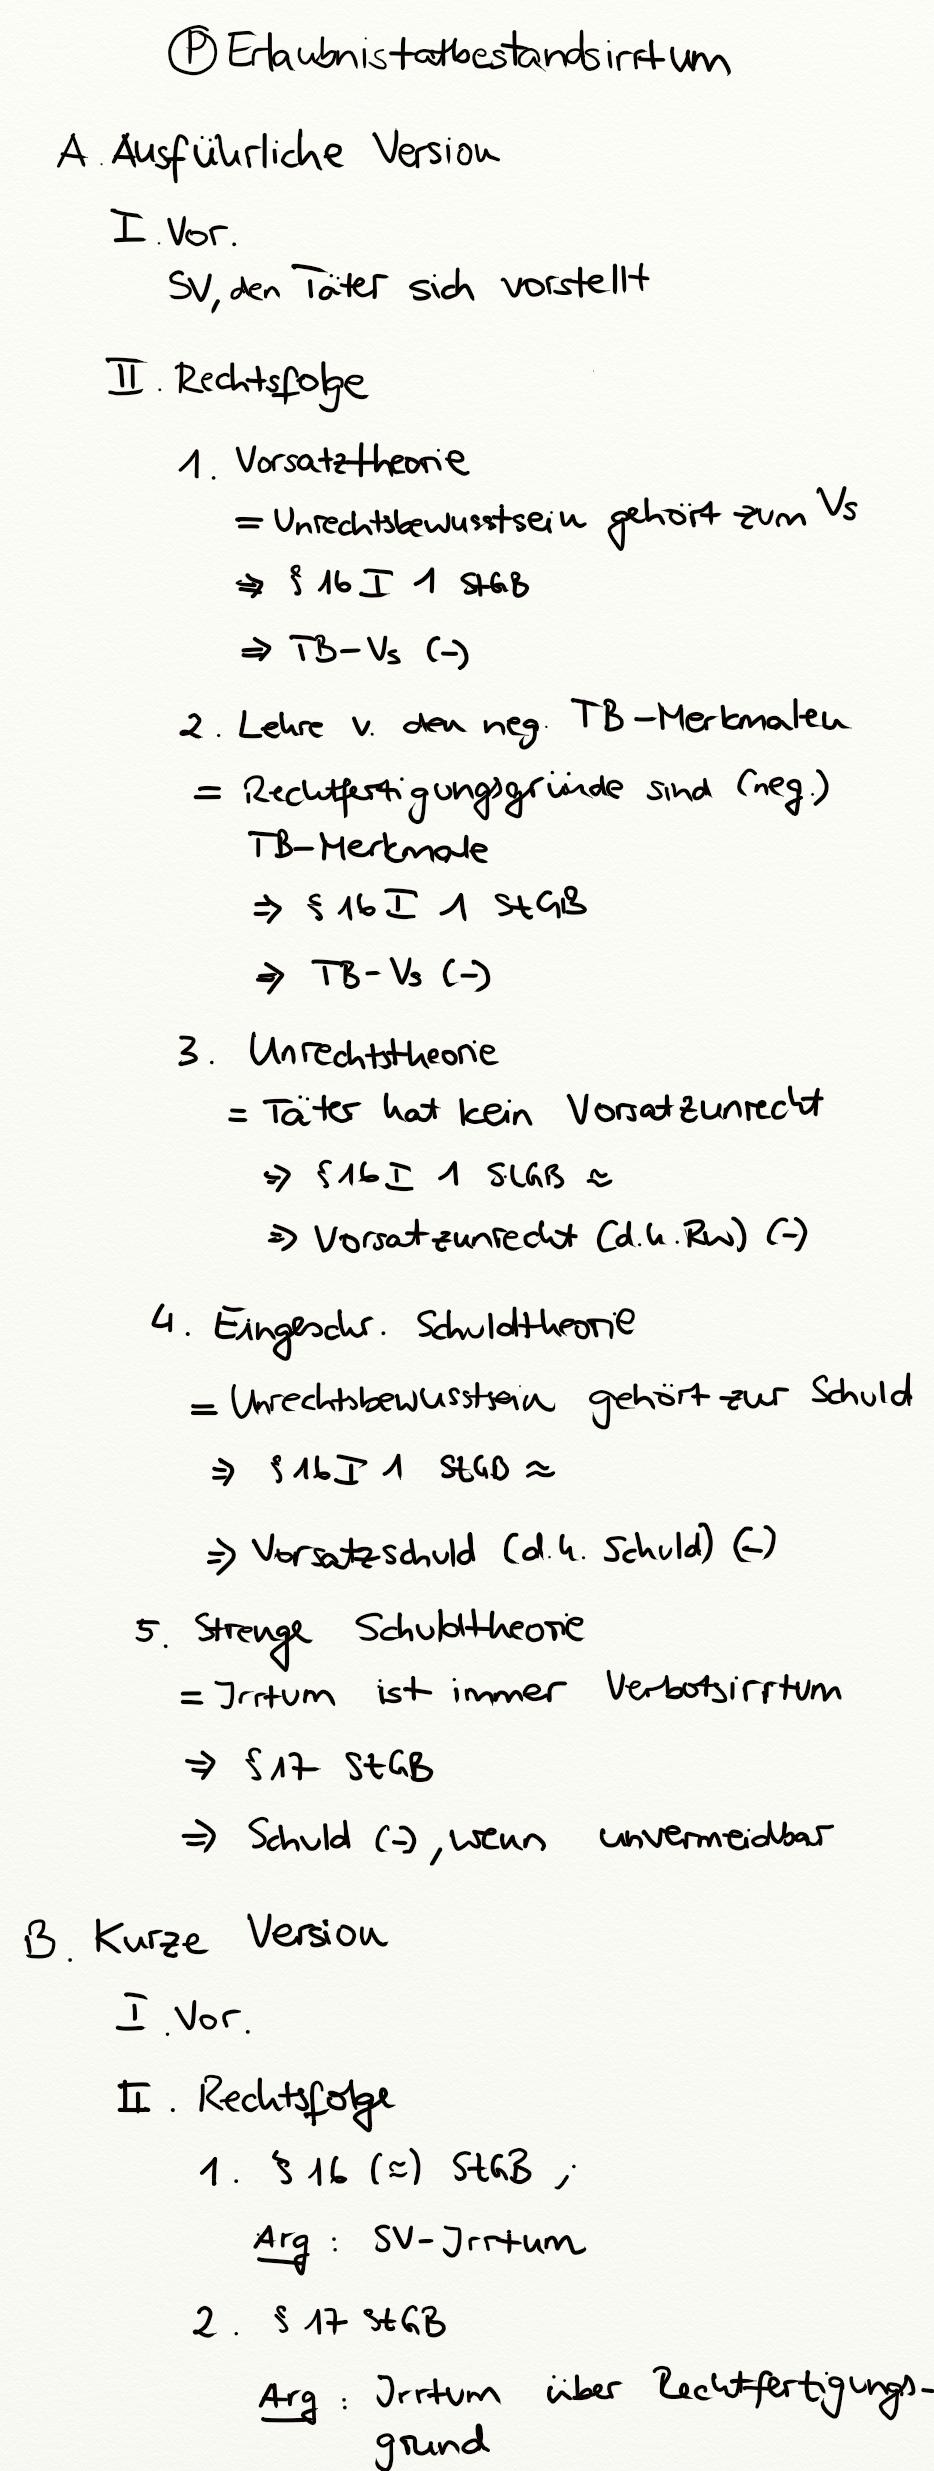 Ⓟ Erlaubnistatbestandsirrtum
A. Ausführliche Version
I. Vor.
SV, den Täter sich vorstellt
II. Rechtsfolge
1. Vorsatztheorie
= Unrechtsbewusstsein gehört zum Vs
⇒ § 16 I 1 StGB
⇒ TB-Vs (-)
2. Lehre v. den neg. TB-Merkmalen
= Rechtfertigungsgründe sind (neg.)
TB-Merkmale
⇒ § 16 I 1 StGB
⇒ TB-Vs (-)
3. Unrechtstheorie
= Täter hat kein Vorsatzunrecht
⇒ § 16 I 1 StGB ≈
⇒ Vorsatzunrecht (d.h. RW) (-)
4. Eingeschr. Schuldtheorie
= Unrechtsbewusstsein gehört zur Schuld
⇒ § 16 I 1 StGB ≈
⇒ Vorsatzschuld (d.h. Schuld) (-)
5. Strenge Schuldtheorie
= Irrtum ist immer Verbotsirrtum
⇒ § 17 StGB
⇒ Schuld (-), wenn unvermeidbar
B. Kurze Version
I. Vor.
II. Rechtsfolge
1. § 16 (≈) StGB ;
Arg : SV-Irrtum
2. § 17 StGB
Arg : Irrtum über Rechtfertigungs-
grund